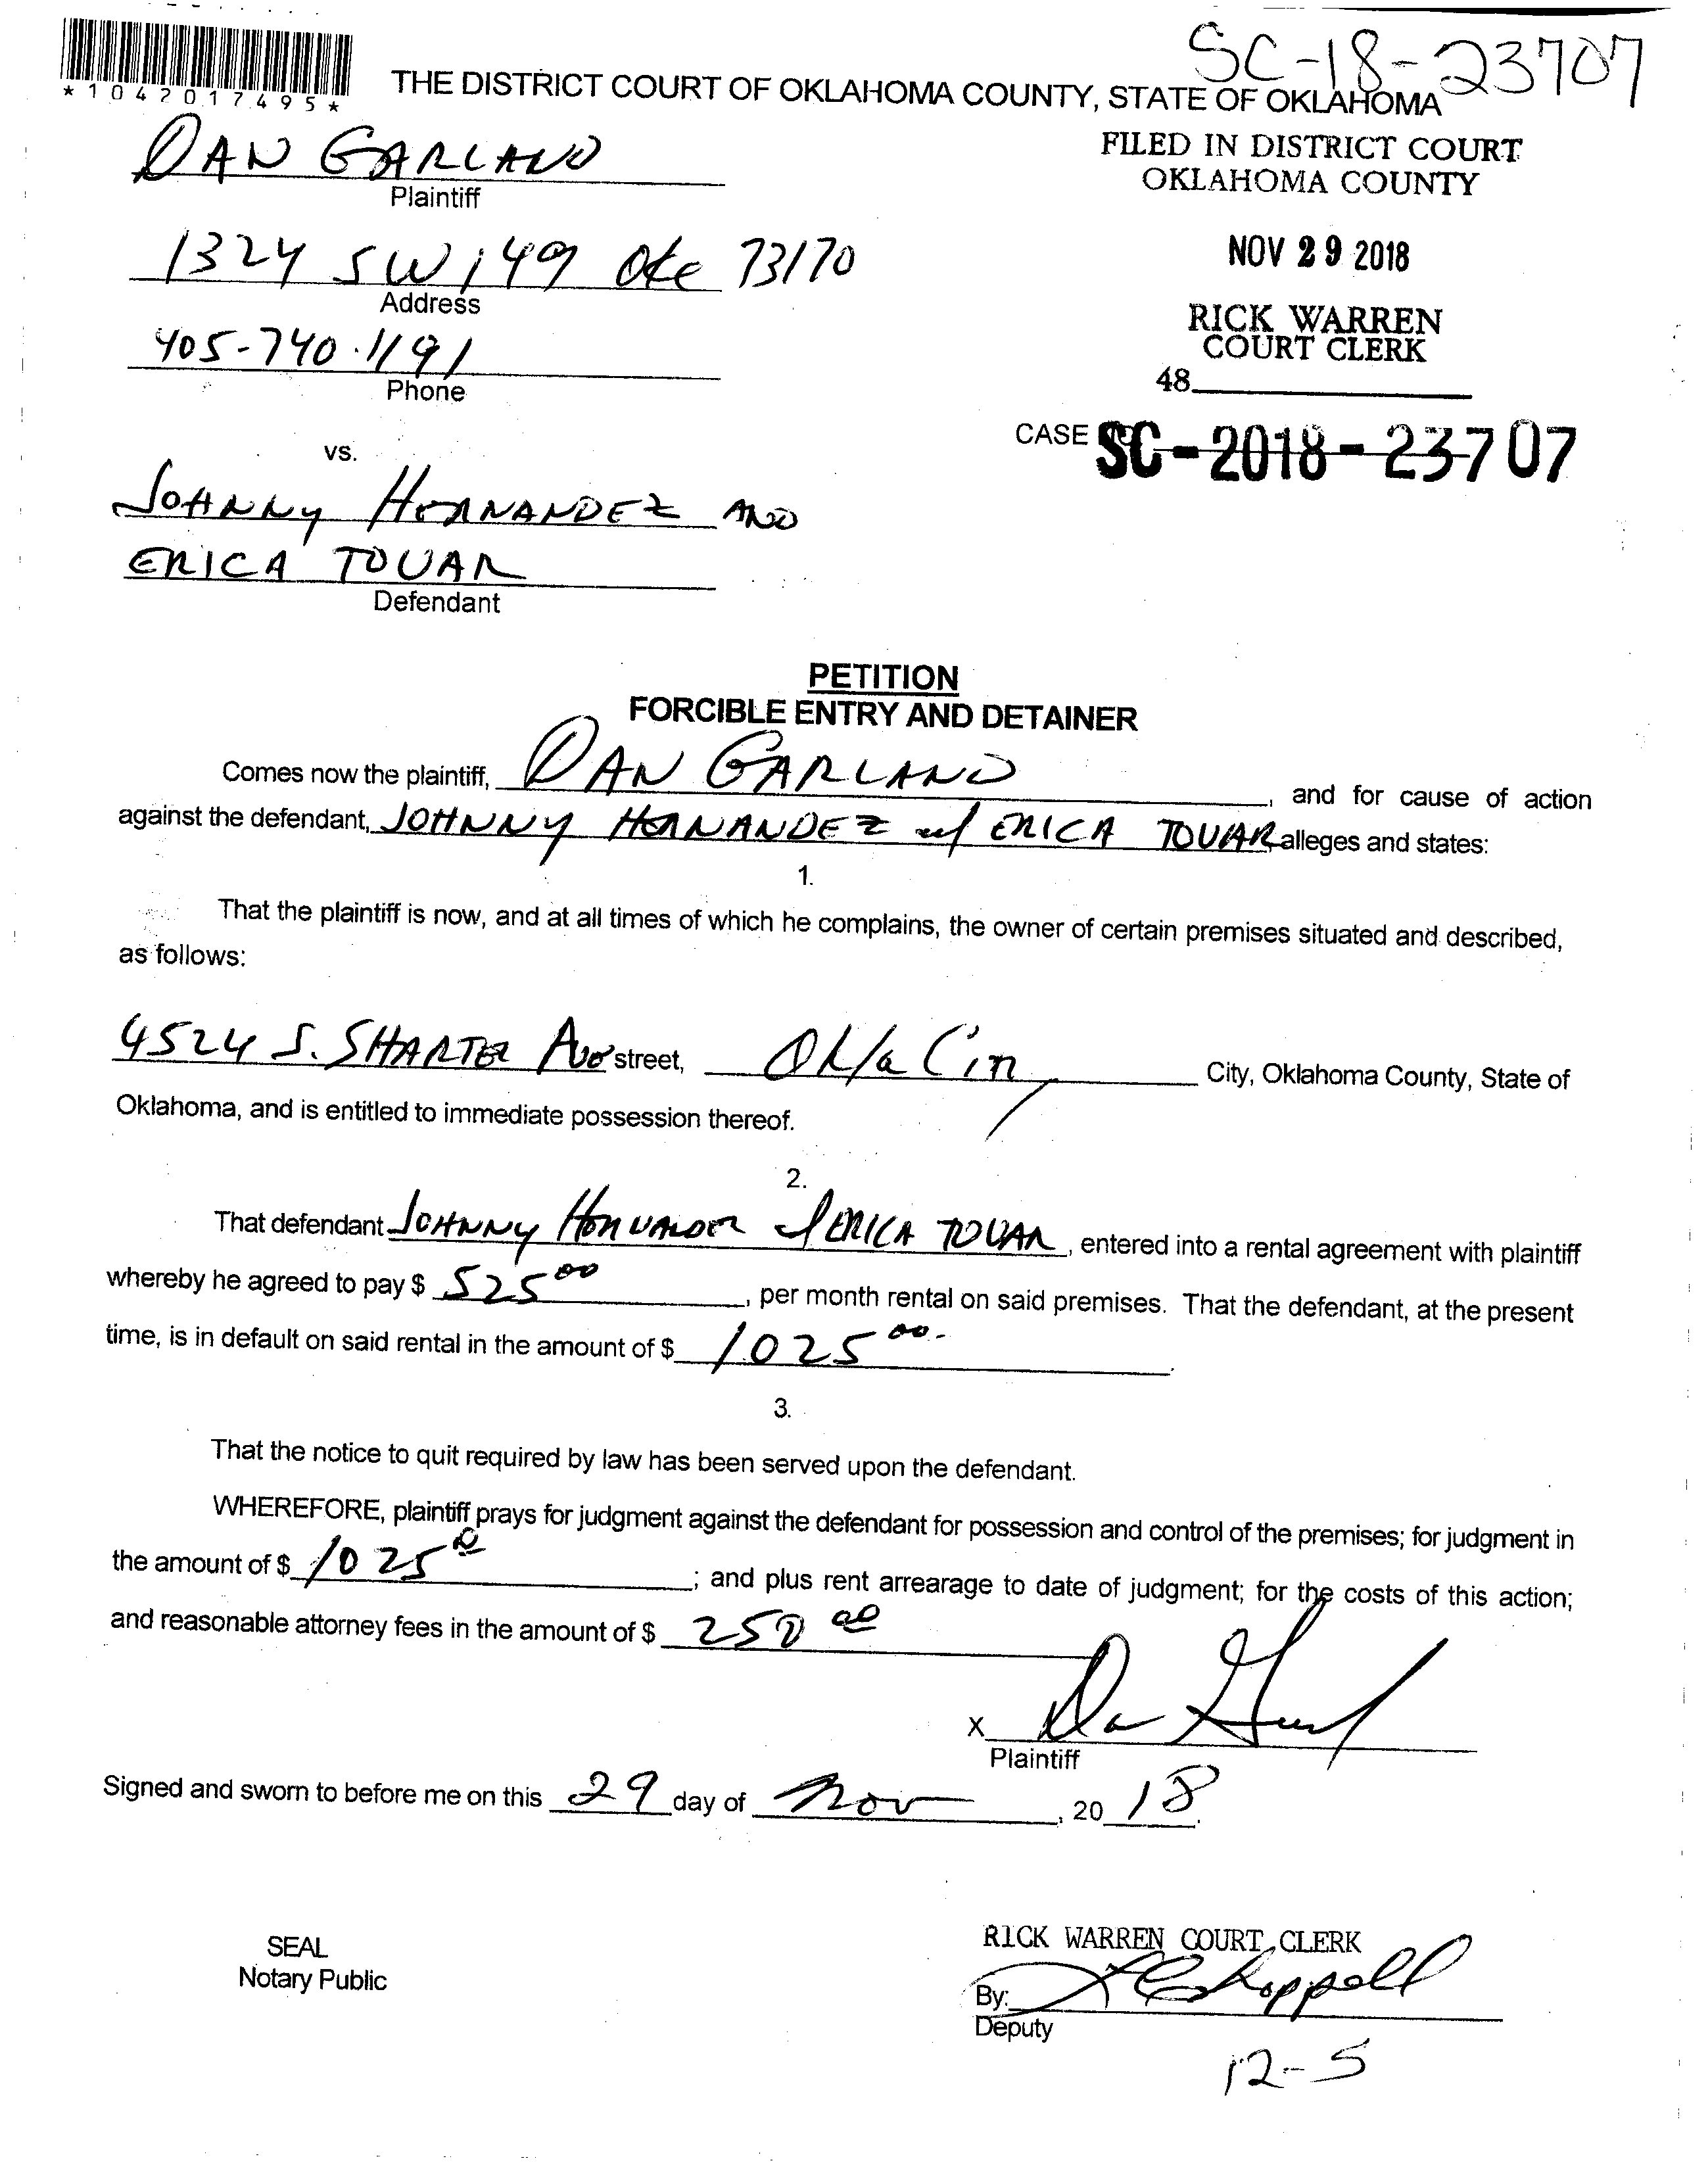 SC-18-23707
*1042017495*
THE DISTRICT COURT OF OKLAHOMA COUNTY, STATE OF OKLAHOMA
DAN GARLAND
Plaintiff
FILED IN DISTRICT COURT
OKLAHOMA COUNTY
1324 SW 149 Okc 73170
Address
NOV 29 2018
405-740-1191
Phone
RICK WARREN
COURT CLERK
48
vs.
CASE SC-2018-23707
JOHNNY HERNANDEZ AND
ERICA TOVAR
Defendant
PETITION
FORCIBLE ENTRY AND DETAINER
Comes now the plaintiff, DAN GARLAND, and for cause of action
against the defendant, JOHNNY HERNANDEZ and ERICA TOVAR alleges and states:
1.
That the plaintiff is now, and at all times of which he complains, the owner of certain premises situated and described,
as follows:
4524 S. SHARTEL Ave street, Okla City City, Oklahoma County, State of
Oklahoma, and is entitled to immediate possession thereof.
2.
That defendant JOHNNY ERICA TOVAR, entered into a rental agreement with plaintiff
whereby he agreed to pay $ 525 00, per month rental on said premises. That the defendant, at the present
time, is in default on said rental in the amount of $ 1025 00.
3.
That the notice to quit required by law has been served upon the defendant.
WHEREFORE, plaintiff prays for judgment against the defendant for possession and control of the premises; for judgment in
the amount of $ 1025; and plus rent arrearage to date of judgment; for the costs of this action;
and reasonable attorney fees in the amount of $ 250 00
X
Plaintiff
Signed and sworn to before me on this 29 day of Nov, 20 18.
SEAL
Notary Public
RICK WARREN COURT CLERK
By:
Deputy
12-5